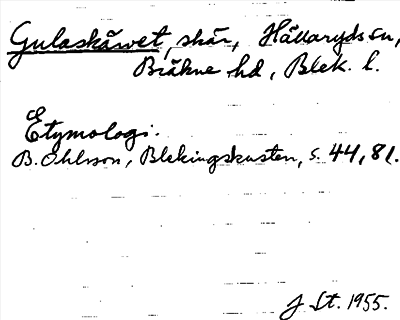 Gulaskärvet, skär, Hällaryds sn,
Bräkne hd, Blek. l.
Etymologi.
B. Ohlsson, Blekingskusten, s. 44, 81.
J. St. 1955.